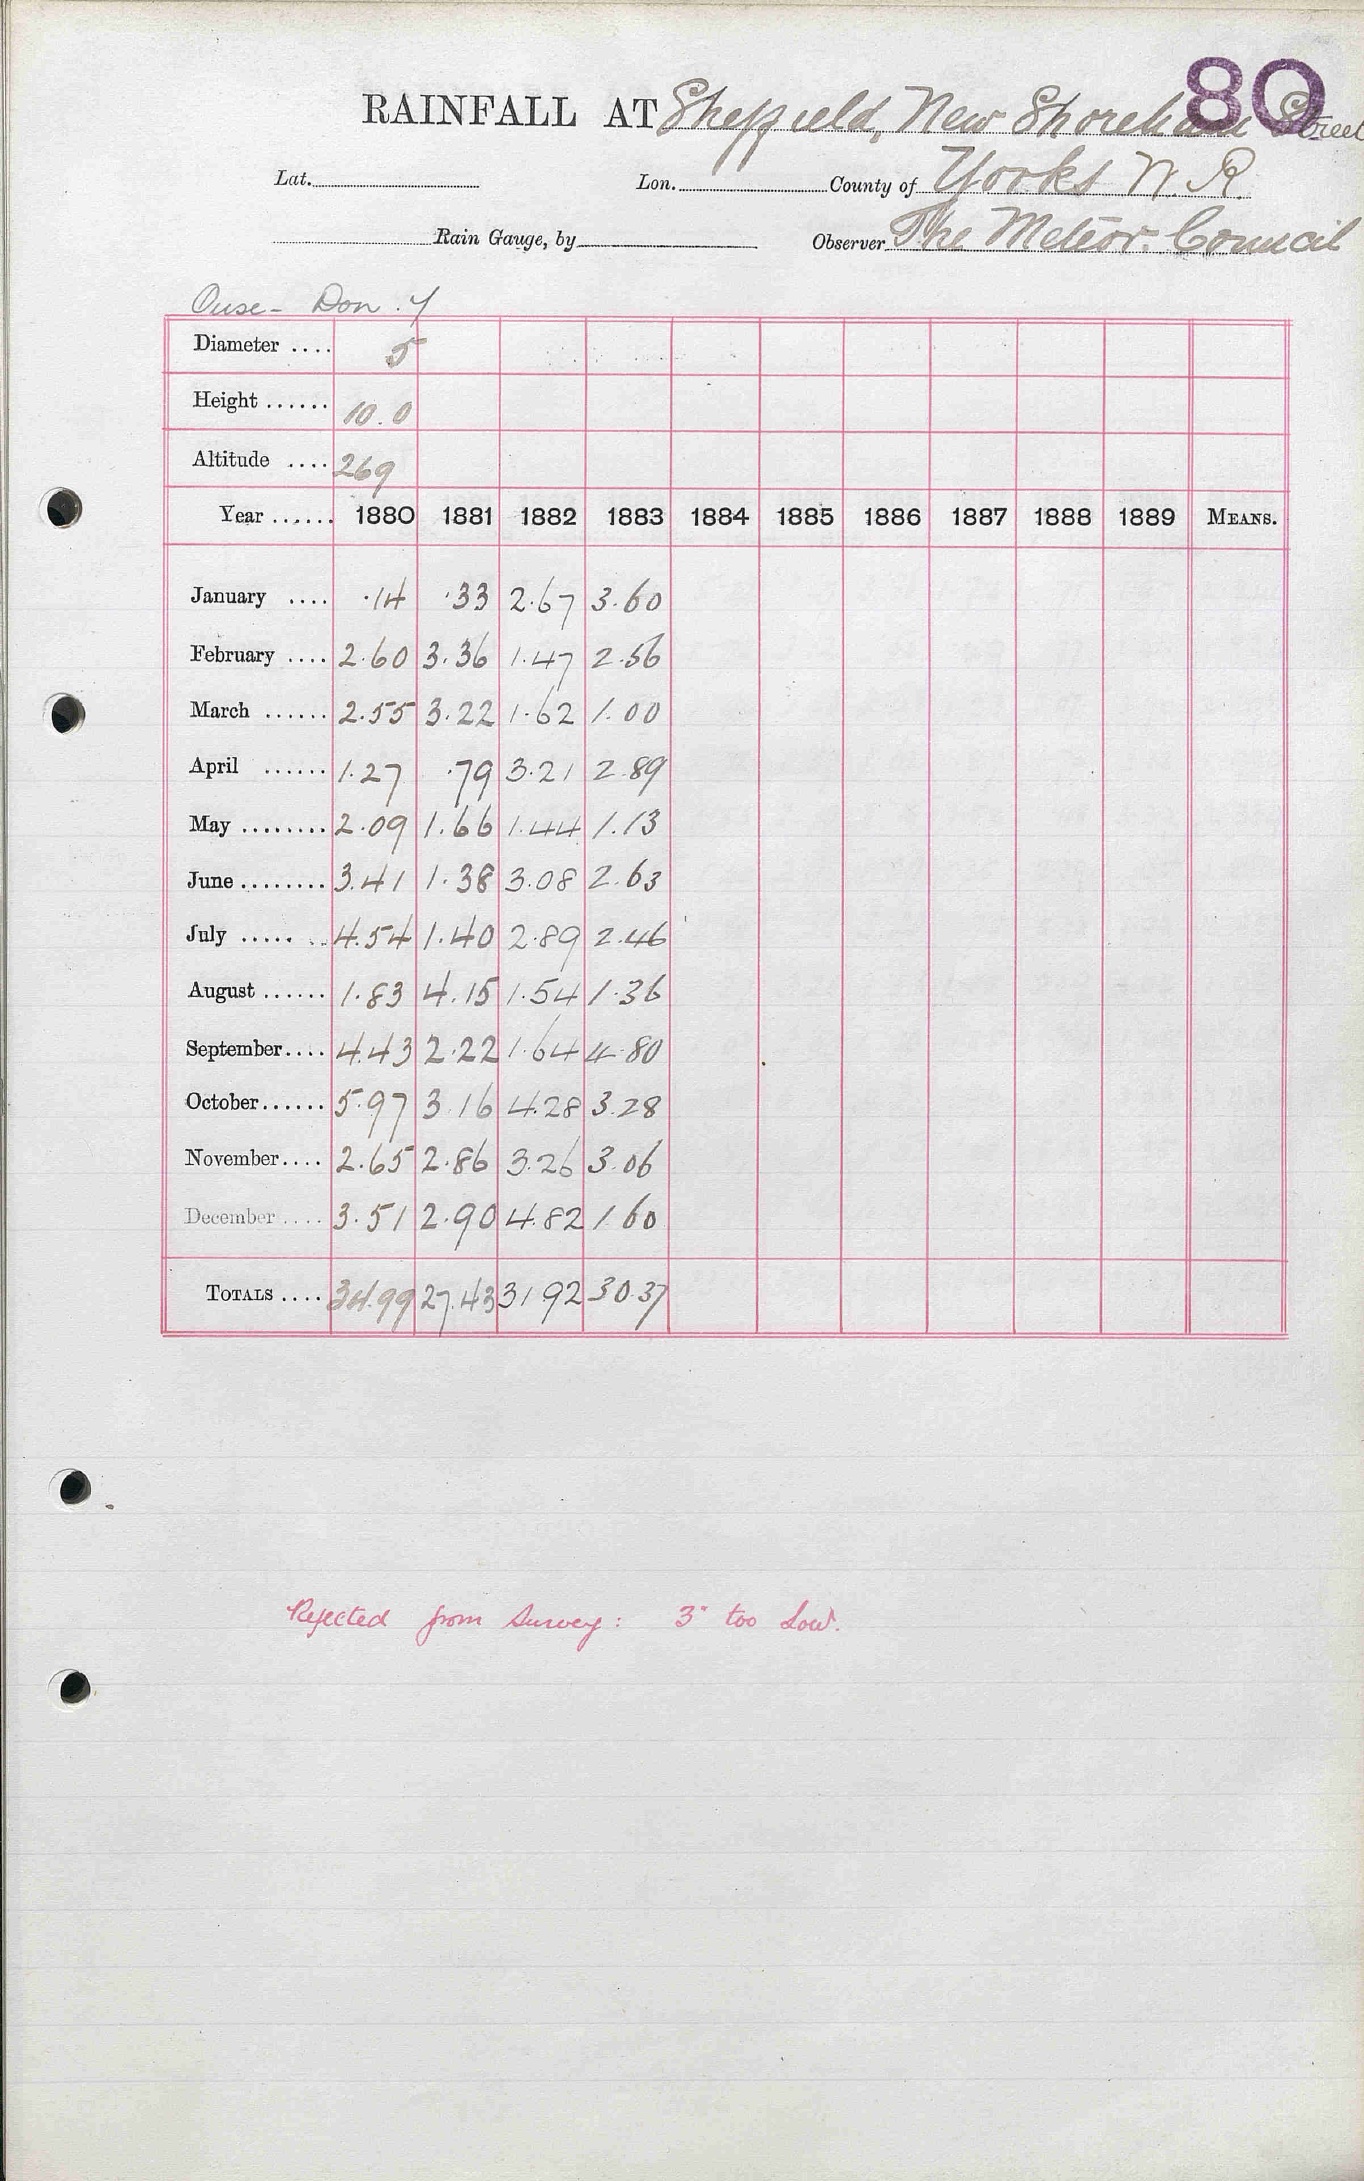 80
RAINFALL AT Sheffield, New Shoreham Street
Lat. Lon. County of Yorks W.R.
Rain Gauge, by Observer The Meteor. Council
Ouse - Don. Y
Diameter .... 5
Height ...... 10.0
Altitude .... 269
Year ...... 1880 1881 1882 1883 1884 1885 1886 1887 1888 1889 MEANS.
January .... .14 .33 2.67 3.60
February .... 2.60 3.36 1.47 2.56
March ...... 2.55 3.22 1.62 1.00
April ...... 1.27 .79 3.21 2.89
May ........ 2.09 1.66 1.44 1.13
June ........ 3.41 1.38 3.08 2.63
July ..... .. 4.54 1.40 2.89 2.46
August ...... 1.83 4.15 1.54 1.36
September.... 4.43 2.22 1.64 4.80
October...... 5.97 3.16 4.28 3.28
November.... 2.65 2.86 3.26 3.06
December .... 3.51 2.90 4.82 1.60
TOTALS .... 34.99 27.43 31.92 30.37
Rejected from Survey: 3" too low.